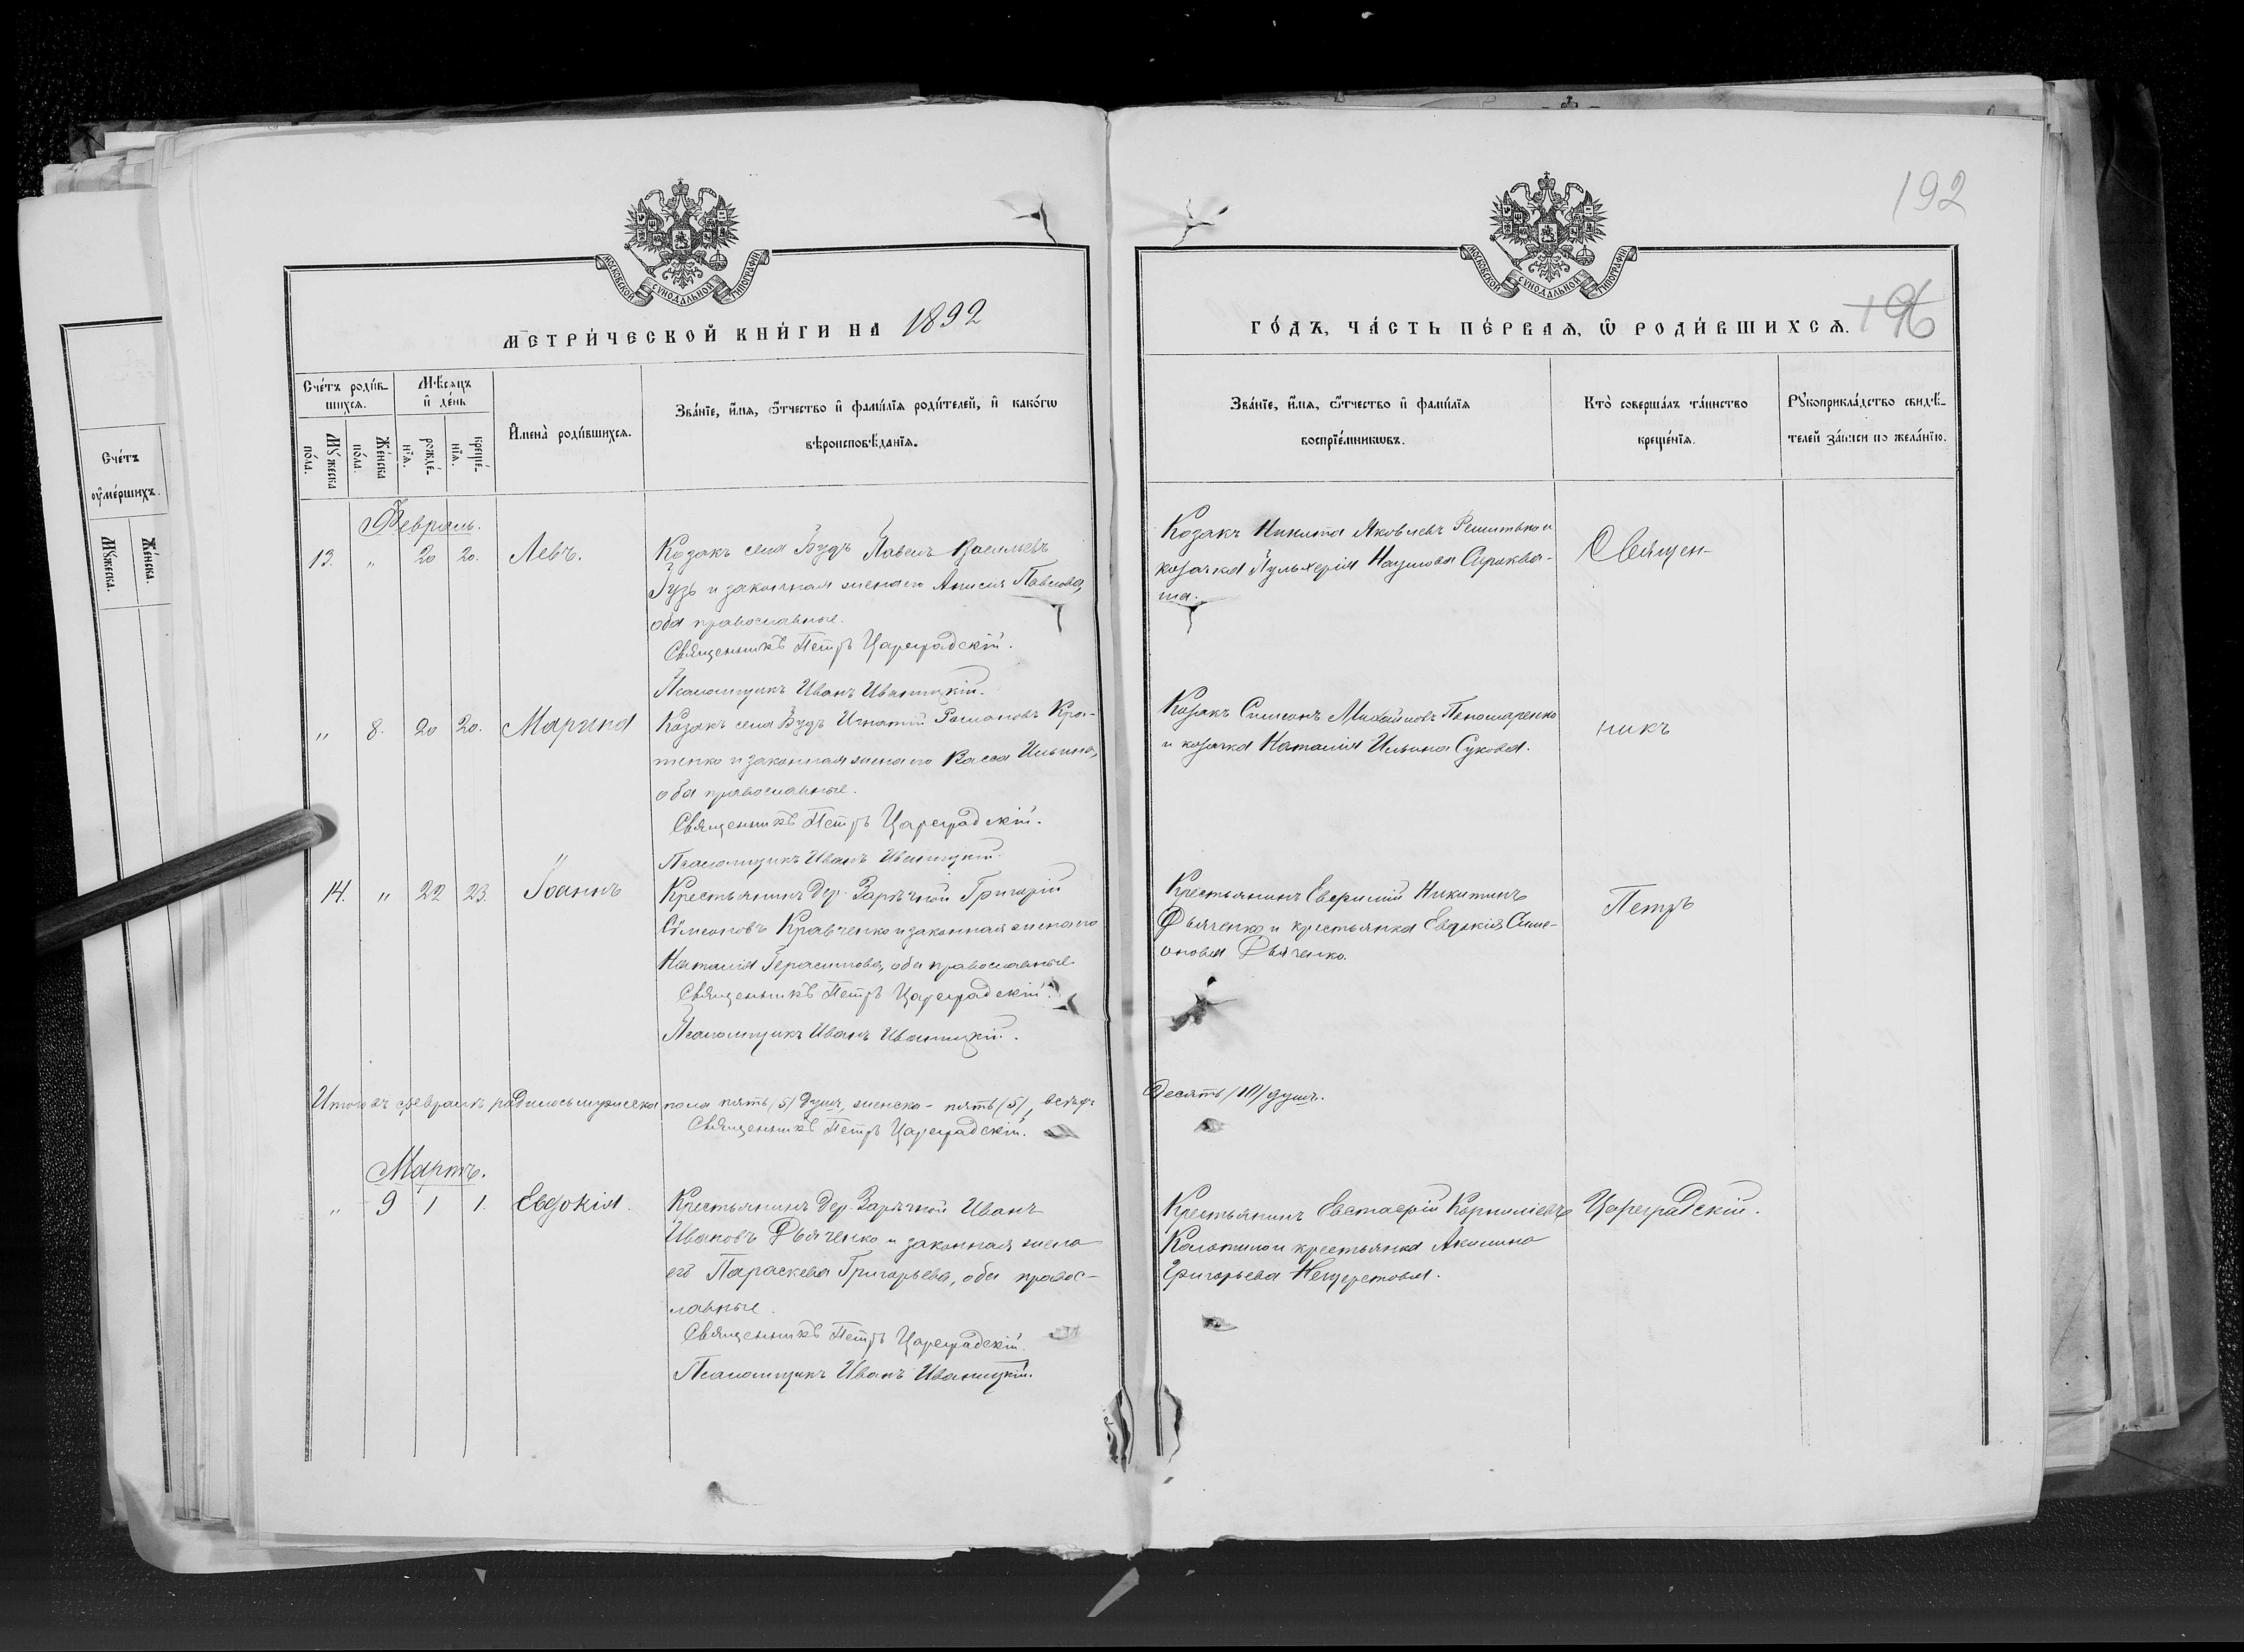 192
196
МОСКОВСКОЙ СУНОДАЛЬНОЙ ТИПОГРАФІИ
МОСКОВСКОЙ СУНОДАЛЬНОЙ ТИПОГРАФІИ
МЕТРИ́ЧЕСКОЙ КНИ́ГИ НА 1892
ГО́ДЪ, ЧА́СТЬ ПЕ́РВАЯ, Ѿ РОДИ́ВШИХСѦ.
Сче́тъ роди́в-
шихсѧ.
Мѣ́сѧцъ
и҆ де́нь
Мꙋ́жеска
по́ла.
Же́нска
по́ла.
рожде́-
нїѧ.
креще́-
нїѧ.
И҆мена̀ роди́вшихсѧ.
Зва́нїе, и҆́мѧ, ѻ҆́тчество и҆ фами́лїѧ роди́телей, и҆ како́гѡ
вѣроисповѣ́данїѧ.
Зва́нїе, и҆́мѧ, ѻ҆́тчество и҆ фами́лїѧ
воспрїе́мникѡвъ.
Кто̀ соверша́лъ та́инство
креще́нїѧ.
Рꙋкоприкла́дство свидѣ́-
телей за́писи по жела́нїю.
Сче́тъ
ᲂу҆ме́ршихъ.
Мꙋ́жеска.
Же́нска.
Февраль.
13. " 20 20. Левъ.
Козакъ села Будъ Павелъ Васильевъ
Гузь и законная жена его Анисія Павлова,
оба православные.
Священникъ Петръ Цареградскій.
Псаломщикъ Иванъ Иваницкій.
Козакъ Никита Яковлевъ Решитько и
козачка Пульхерія Наумова Сириква-
ша.
Священ-
" 8. 20 20. Марина
Козакъ села Будъ Игнатій Романовъ
тенко и законная жена его Васса Ильина,
оба православные.
Священникъ Петръ Цареградскій.
Псаломщикъ Иванъ Иваницкій.
Козакъ Симеонъ Михайловъ Пономаренко
и козачка Наталія Ильина Сукова.
никъ
14. " 22 23. Іоаннъ
Крестьянинъ дер. Зарѣчной Григорій
Сѵмеоновъ Кравченко и законная жена его
Наталія Герасимова, оба православные.
Священникъ Петръ Цареградскій.
Псаломщикъ Иванъ Иваницкій.
Крестьянинъ Евфимій Никитинъ
Дьяченко и крестьянка Евдокія Симе-
онова Дьяченко.
Петръ
Итого въ февралѣ родилось мужеска пола пять /5/ душъ, женска - пять /5/, всѣхъ
десять /10/ душъ.
Священникъ Петръ Цареградскій.
Мартъ.
" 9 1 1. Евдокія.
Крестьянинъ дер. Зарѣчной Иванъ
Ивановъ Дьяченко и законная жена
его Параскева Григорьева, оба право-
славные.
Священникъ Петръ Цареградскій.
Псаломщикъ Иванъ Иваницкій.
Крестьянинъ Евстафій Корниліевъ
Колотило и крестьянка Акилина
Григорьева Нещеретова.
Цареградскій.